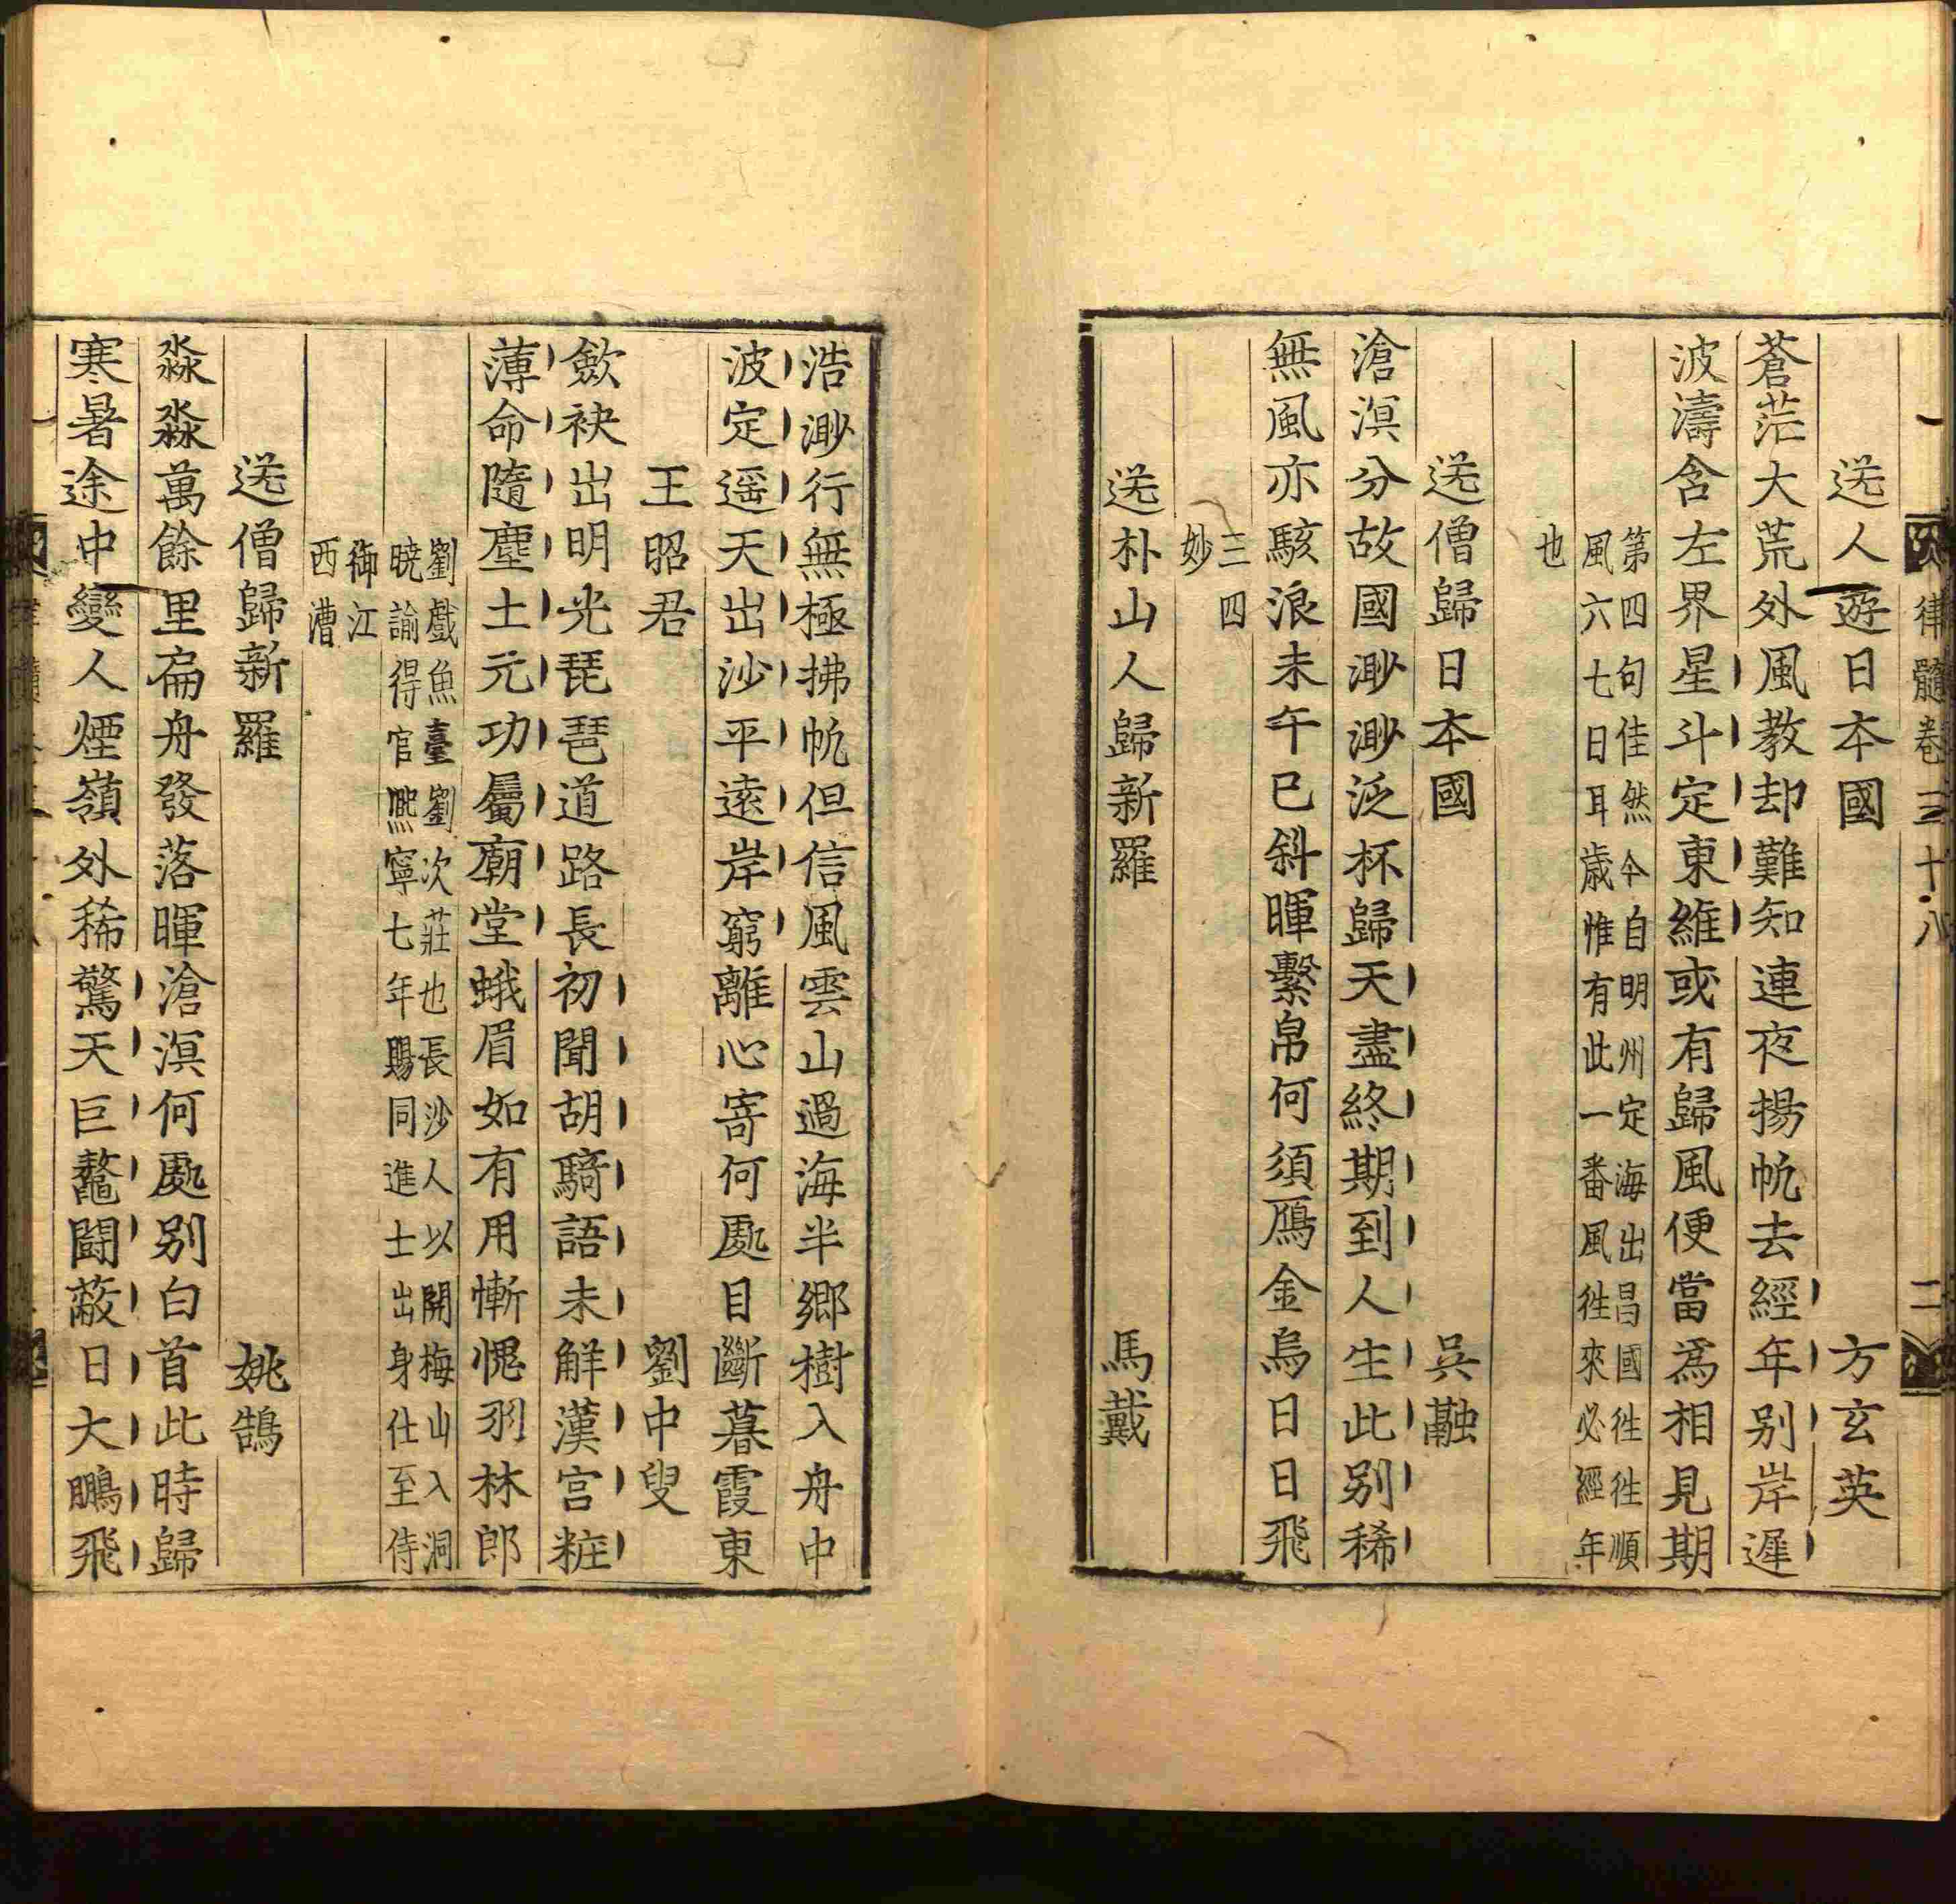 律髓卷三十八
二
送人遊日本國 方玄英
蒼茫大荒外風教却難知連夜揚帆去經年别岸遲
波濤含左界星斗定東維或有歸風便當爲相見期
第四句佳然今自明州定海出昌國徃徃順
風六七日耳歳惟有此一番風徃來必經年
也
送僧歸日本國 吳融
滄溟分故國渺渺泛杯歸天盡終期到人生此别稀
無風亦駭浪未午巳斜暉繫帛何須鴈金烏日日飛
三四
妙
送朴山人歸新羅 馬戴
浩渺行無極拂帆但信風雲山過海半鄉樹入舟中
波定遥天出沙平遠岸窮離心寄何處目斷暮霞東
王昭君 劉中叟
歛袂出明光琵琶道路長初聞胡騎語未解漢宫粧
薄命隨塵土元功屬廟堂蛾眉如有用慚愧羽林郎
劉戲魚臺劉次莊也長沙人以開梅山入洞
曉諭得官熈寧七年賜同進士出身仕至侍
御江
西漕
送僧歸新羅 姚鵠
淼淼萬餘里扁舟發落暉滄溟何處别白首此時歸
寒暑途中變人煙嶺外稀驚天巨鼇鬪蔽日大鵬飛